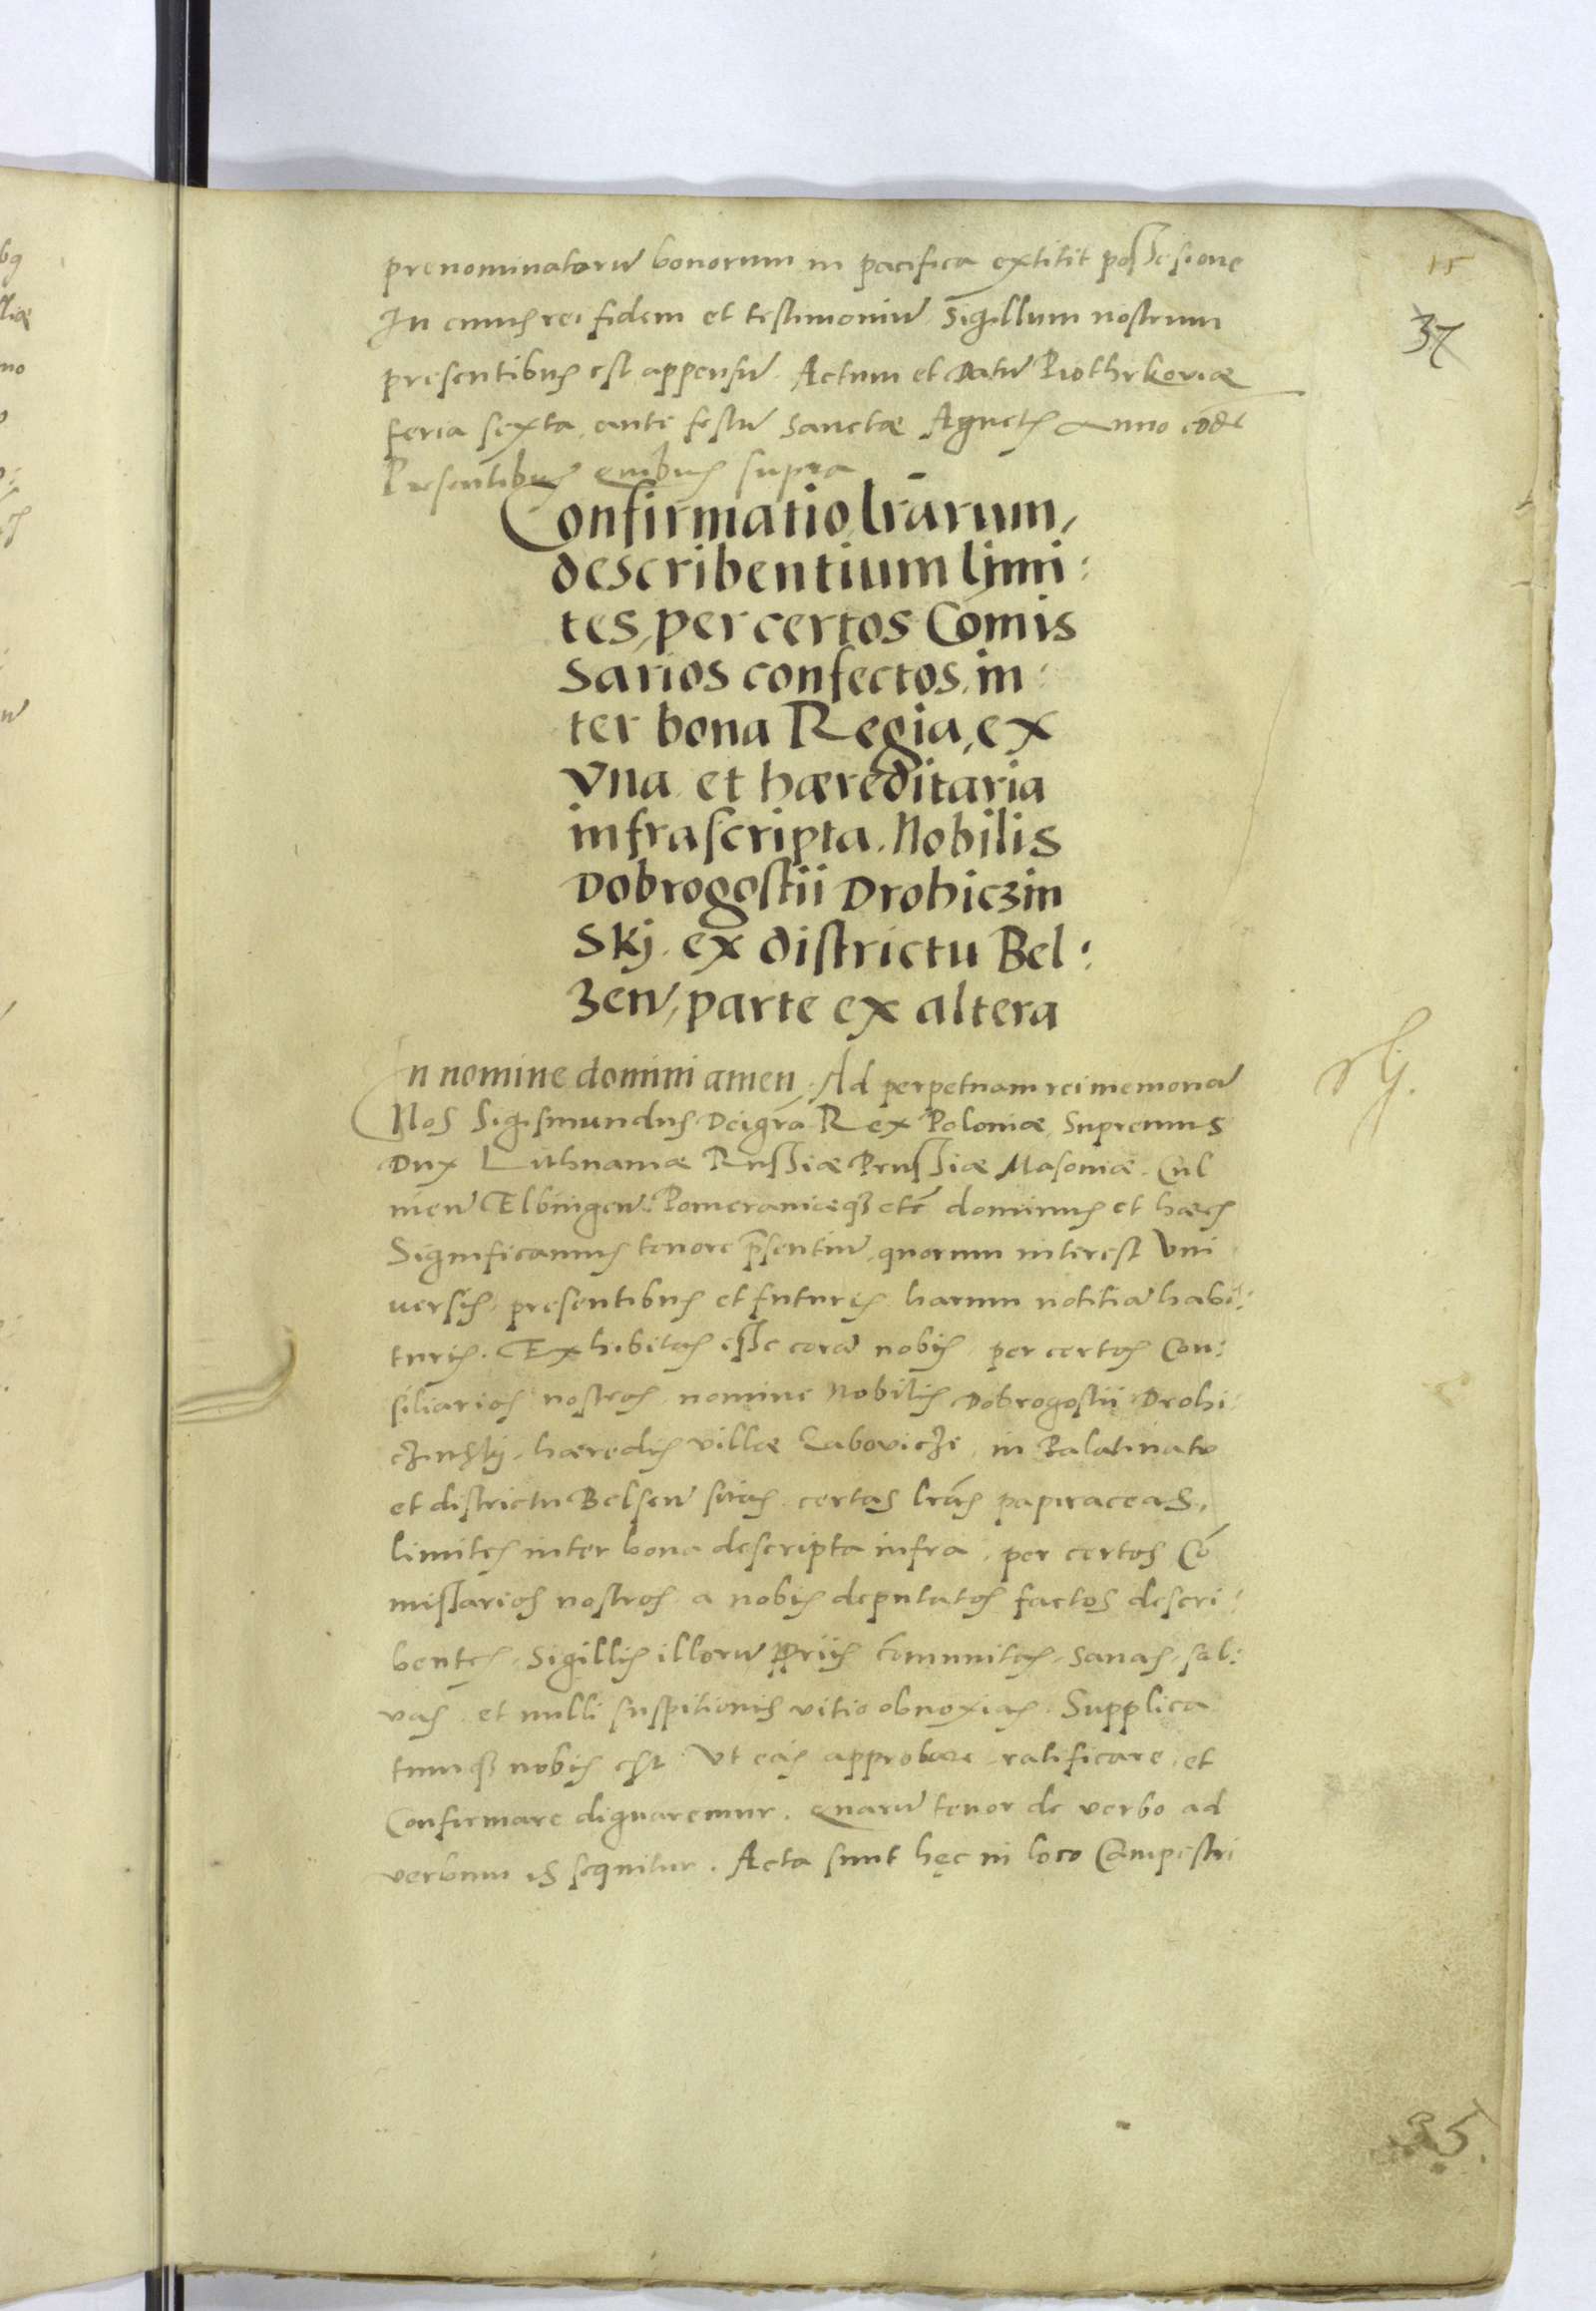 prenominatorū bonorum in pacifica extitit possessione
In cuius rei fidem et testimoniū Sigillum nostrum
presentibus est appensū Actum et Datū Piothrkoviæ
feria sexta ante festū Sanctæ Agnetis Anno eodē
Presentibus quibus supra
15
37
Confirmatio lrārum,
describentium limi:
tes, per certos Comis
sarios confectos, in:
ter bona Regia, ex
vna et hæreditaria
infrascripta. Nobilis
Dobrogostii Drohiczin
Skj. ex districtu Bel:
zeñ, parte ex altera
In nomine domini amen. Ad perpetuam rei memoriā
Nos Sigismundus Dei grā Rex Poloniæ Supremus
Dux Lithuaniæ Russiæ Prussiæ Masoviæ. Cul
meñ Elbingeñ: Pomeraniæq3 etc̄ dominus et hæres
Significamus tenore p̄sentiū quorum interest Vni
uersis, presentibus et futuris harum notitiā habi:
turis. Exhibitas esse corā nobis per certos Con:
siliarios nostros nomine Nobilis Dobrogostii Drohi:
czinskij. hæredis villæ Labovicze in Palatinatu
et districtu Belseñ sitæ certas lrās papiraceas,
limites inter bona descripta infra, per certos Cō
missarios nostros a nobis deputatos factos descri:
bentes. Sigillis illorū ppriis cōmunitas. Sanas. sal:
vas. et nulli suspitionis vitio obnoxias. Supplica
tumq3 nobis est Vt eas approbare ratificare et
Confirmare dignaremur. Quarū tenor de verbo ad
verbum is sequitur. Acta sunt hęc in loco Campestri
35.